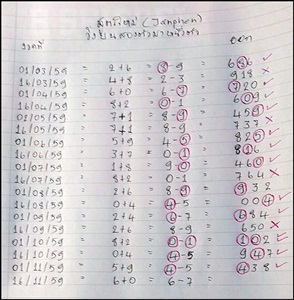 สูตรหวย (Jamphon)
งวดที่
01/03/59 = 2+6 = 8-9 = 686 ✓
16/03/59 = 4+8 = 2-3 = 918 ×
01/04/59 = 6+0 = 6-7 = 720 ✓
16/04/59 = 8+2 = 0-1 = 609 ✓
01/05/59 = 7+1 = 8-9 = 459 ✓
16/05/59 = 7+1 = 8-9 = 737 ×
01/06/59 = 5+9 = 4-5 = 825 ✓
16/06/59 = 3+7 = 0-1 = 816 ✓
01/07/59 = 1+8 = 9-0 = 460 ✓
16/07/59 = 8+2 = 0-1 = 764 ×
01/08/59 = 2+6 = 8-9 = 932
16/08/59 = 0+4 = 4-5 = 004 ✓
01/09/59 = 2+4 = 6-7 = 684 ✓
16/09/59 = 2+6 = 8-9 = 650 ×
01/10/59 = 8+2 = 0-1 = 102 ✓
16/10/59 = 0+4 = 4-5 = 947 ✓
01/11/59 = 5+9 = 4-5 = 438 ✓
16/11/59 = 6+0 = 6-7 =